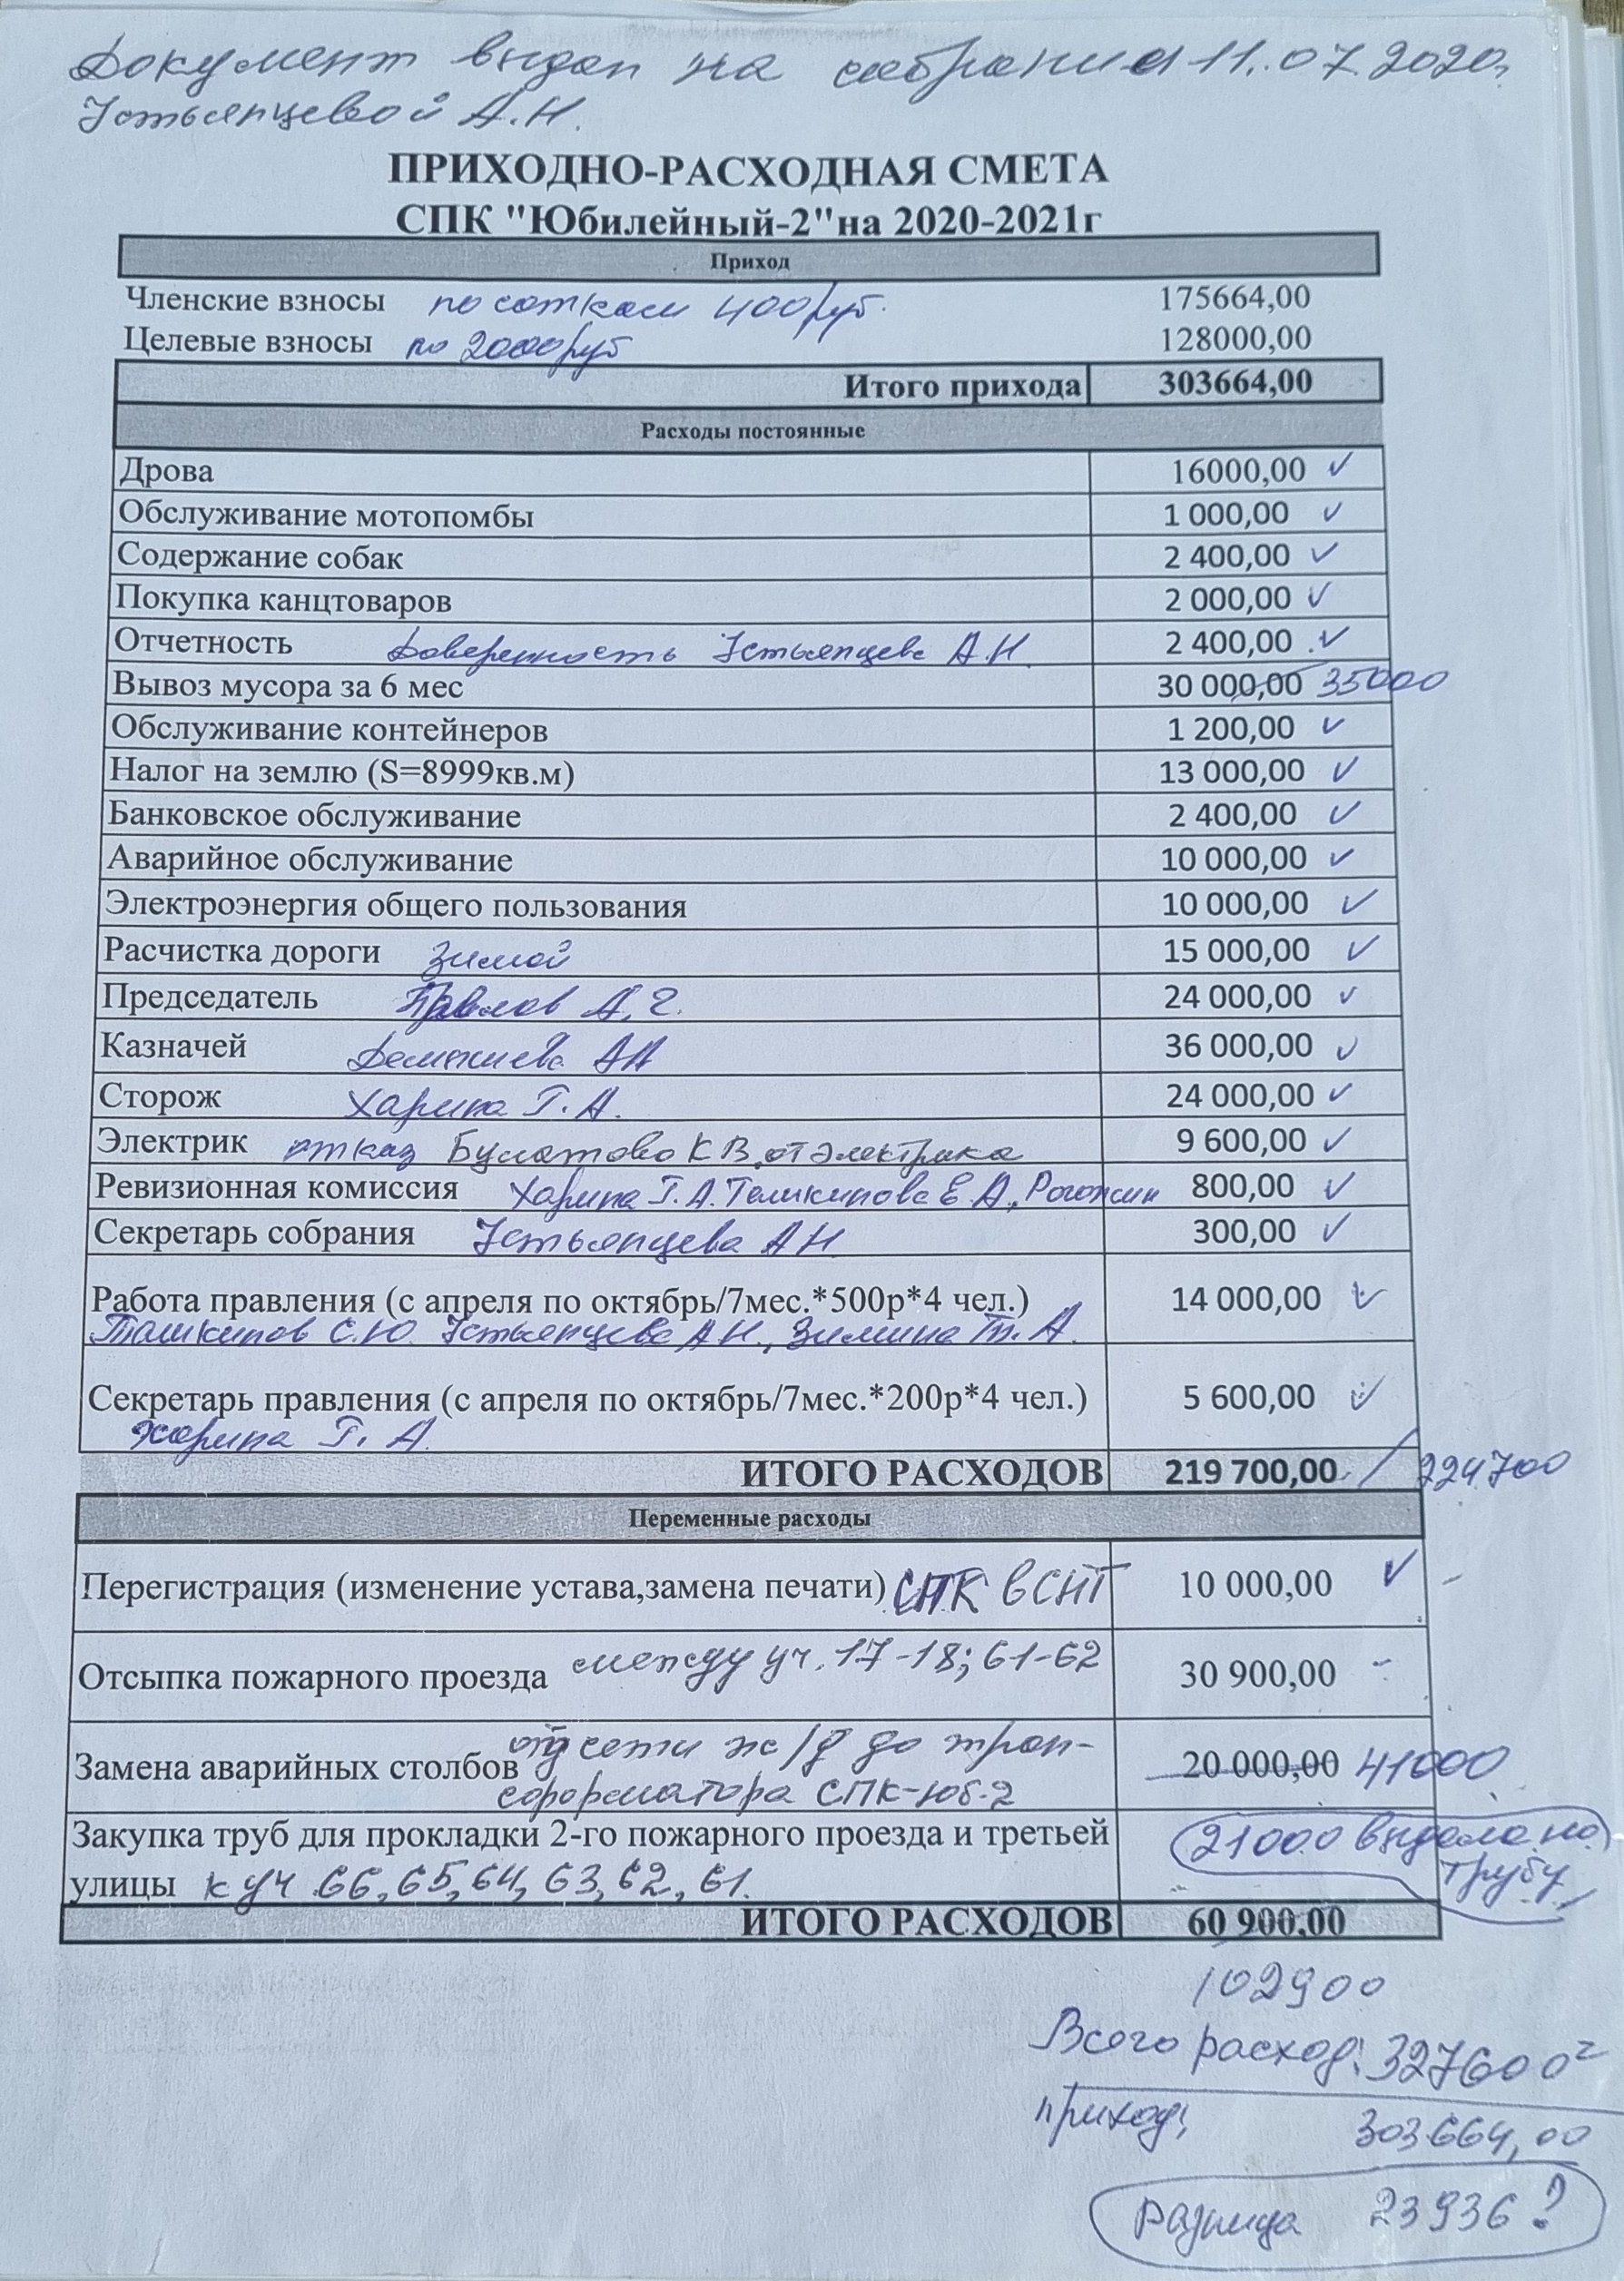 Документ выдан на собрании 11.07.2020г
Устьянцевой А.Н.
ПРИХОДНО-РАСХОДНАЯ СМЕТА
СПК "Юбилейный-2"на 2020-2021г
Приход
Членские взносы по соткам 400руб. 175664,00
Целевые взносы по 2000руб 128000,00
Итого прихода 303664,00
Расходы постоянные
Дрова 16000,00 ✓
Обслуживание мотопомбы 1 000,00 ✓
Содержание собак 2 400,00 ✓
Покупка канцтоваров 2 000,00 ✓
Отчетность Доверенность Устьянцева А.Н 2 400,00 ✓
Вывоз мусора за 6 мес 30 000,00 35000
Обслуживание контейнеров 1 200,00 ✓
Налог на землю (S=8999кв.м) 13 000,00 ✓
Банковское обслуживание 2 400,00 ✓
Аварийное обслуживание 10 000,00 ✓
Электроэнергия общего пользования 10 000,00 ✓
Расчистка дороги Зимой 15 000,00 ✓
Председатель А.Г. 24 000,00 ✓
Казначей АА 36 000,00 ✓
Сторож Харина Г.А. 24 000,00 ✓
Электрик отказ Булатово К В. от электрика 9 600,00 ✓
Ревизионная комиссия Харина Г.А. Е.А., Рогожин 800,00 ✓
Секретарь собрания Устьянцева АН 300,00 ✓
Работа правления (с апреля по октябрь/7мес.*500р*4 чел.) 14 000,00 ✓
Ташкинов С.Ю. Устьянцева АН., Зимина Т.А.
Секретарь правления (с апреля по октябрь/7мес.*200р*4 чел.) 5 600,00 ✓
Харина Г. А.
ИТОГО РАСХОДОВ 219 700,00 / 224700
Переменные расходы
Перегистрация (изменение устава,замена печати) СПК в СНТ 10 000,00 ✓
Отсыпка пожарного проезда между уч. 17-18; 61-62 30 900,00 -
Замена аварийных столбов от сети ж/д до тран- 20 000,00 41000
сформатора СПК-Юб-2
Закупка труб для прокладки 2-го пожарного проезда и третьей 21000 выдела на
улицы к уч 66, 65, 64, 63, 62, 61. трубу
ИТОГО РАСХОДОВ 60 900,00
102900
Всего расход: 327600
приход: 303664,00
разница 23936?